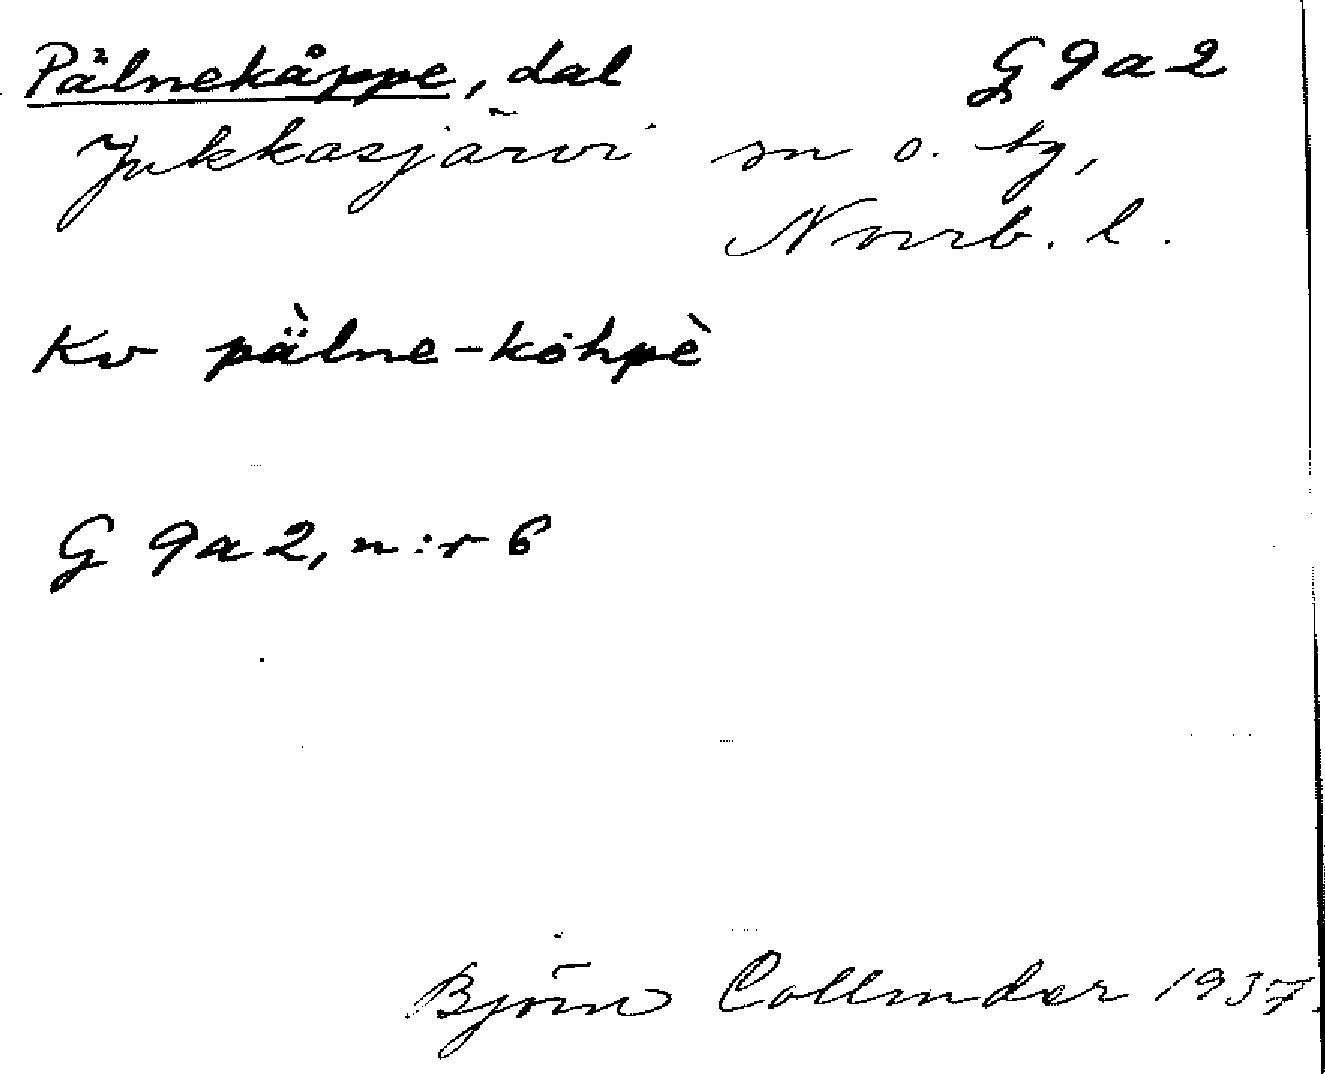 Pälnekåppe, dal G 9a2
Jukkasjärvi sn o. tg,
Norrb. l.
Kv pä̀lne-kȯhpè
G 9a2, n:r 6
Björn Collinder 1937.